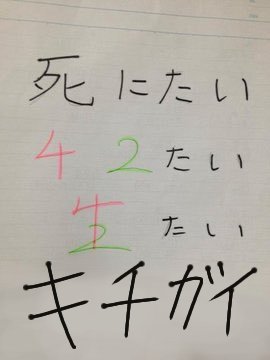 死にたい
4 2たい
生たい
キチガイ